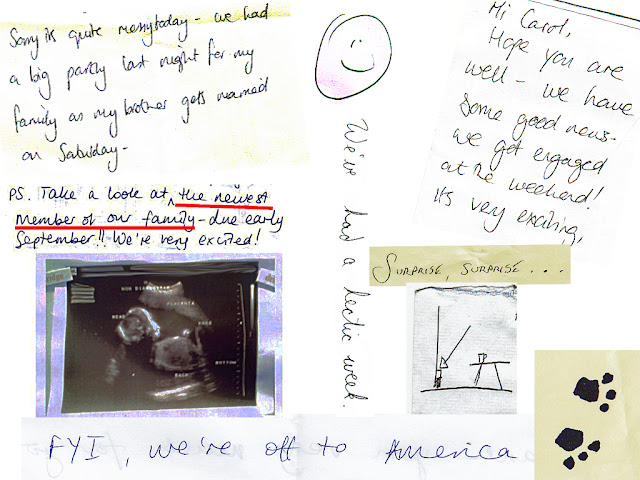 Sorry it's quite messy today - we had
a big party last night for my
family as my brother gets married
on Saturday -
PS. Take a look at the newest
member of our family - due early
September!! We're very excited!
PLACENTA
HEAD
KNEE
BOTTOM
BACK
We've had a hectic week.
Hi Carol,
Hope you are
well - we have
Some good news -
we got engaged
at the weekend!
It's very exciting,
SURPRISE, SURPRISE...
FYI, we're off to America